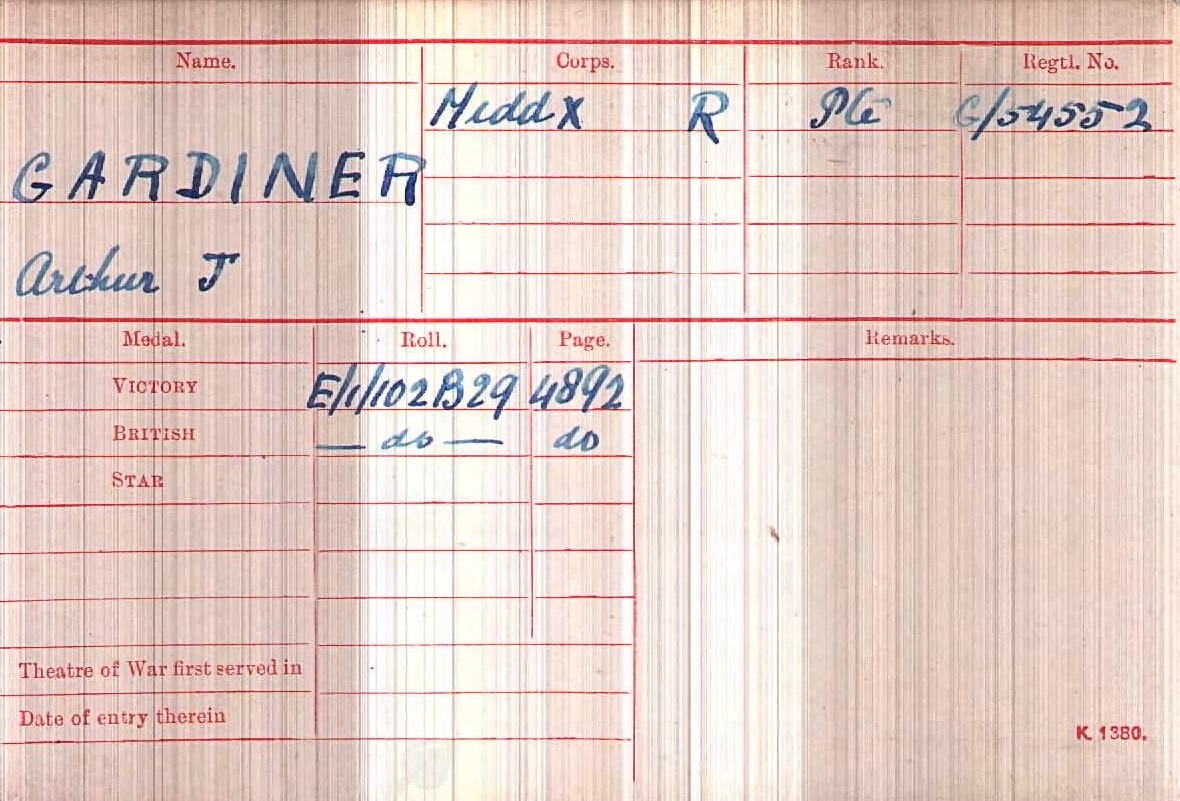 Name. Corps. Rank. Regtl. No.
Middx R Pte G/54552
GARDINER
Arthur J
Medal. Roll. Page. Remarks.
VICTORY E/1/102B29 4892
BRITISH — do — do
STAR
Theatre of War first served in
Date of entry therein
K. 1380.